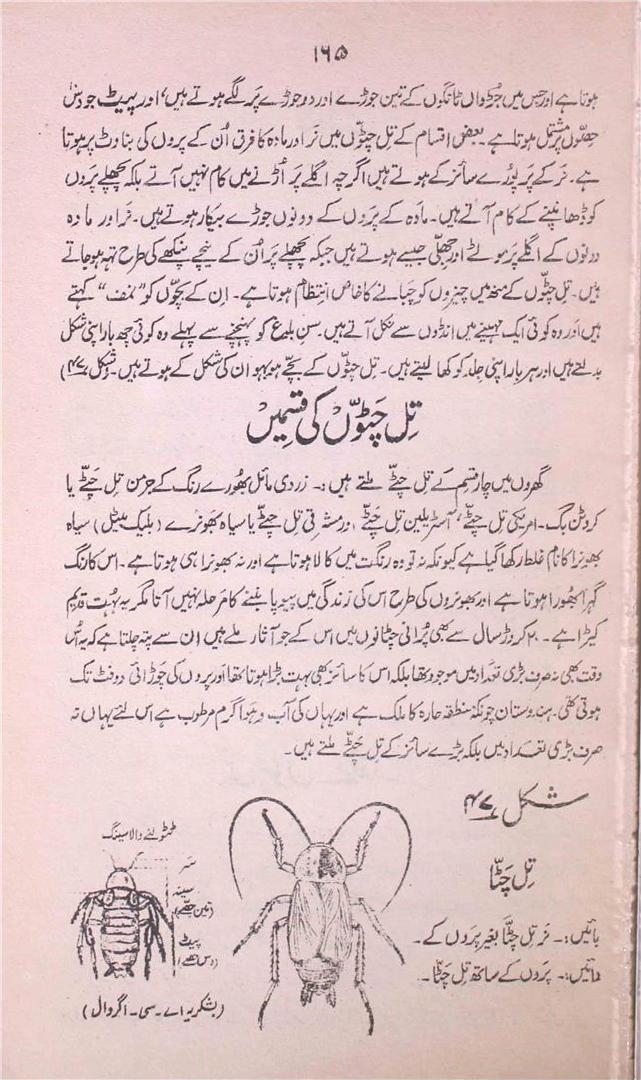 ۱۶۵
ہوتا ہے اور جس میں جڑواں ٹانگوں کے تین جوڑے اور دو جوڑے پر لگے ہوتے ہیں، اور پیٹ جو دس
حصّوں پر مشتمل ہوتا ہے۔ بعض اقسام کے تل چٹّوں میں نر اور مادہ کا فرق اُن کے پروں کی بناوٹ پر ہوتا
ہے۔ نر کے پَر پورے سائز کے ہوتے ہیں اگرچہ اگلے پَر اُڑنے میں کام نہیں آتے بلکہ پچھلے پروں
کو ڈھانپنے کے کام آتے ہیں۔ مادہ کے پروں کے دونوں جوڑے بیکار ہوتے ہیں۔ نر اور مادہ
دونوں کے اگلے پَر موٹے اور جھلّی جیسے ہوتے ہیں جبکہ پچھلے پَر اُن کے نیچے پنکھے کی طرح تہہ ہو جاتے
ہیں۔ تل چٹّوں کے منھ میں چیزوں کو چبانے کا خاص انتظام ہوتا ہے۔ ان کے بچّوں کو ”نمف“ کہتے
ہیں اور وہ کوئی ایک مہینے میں انڈوں سے نکل آتے ہیں۔ سنِ بلوغ کو پہنچنے سے پہلے وہ کوئی چھ بار اپنی شکل
بدلتے ہیں اور ہر بار اپنی جلد کو کھا لیتے ہیں۔ تل چٹّوں کے بچّے ہو بہو ان کی شکل کے ہوتے ہیں۔ (شکل ۴۷)
تِل چَٹّوں کی قسمیں
گھروں میں چار قسم کے تل چٹّے ملتے ہیں:۔ زردی مائل بھورے رنگ کے جرمن تل چَٹّے یا
کروٹن بگ۔ امریکی تل چٹّے، آسٹریلین تل چَٹّے اور مشرقی تل چٹّے یا سیاہ بھونرے (بلیک بیٹل) سیاہ
بھونرا کا نام غلط رکھا گیا ہے کیونکہ نہ تو وہ رنگت میں کالا ہوتا ہے اور نہ بھونرا ہی ہوتا ہے۔ اس کا رنگ
گہرا بھورا ہوتا ہے اور بھونروں کی طرح اس کی زندگی میں پیوپا بننے کا مرحلہ نہیں آتا مگر یہ بہت قدیم
کیڑا ہے۔ ۲۰ کروڑ سال سے بھی پُرانی چٹانوں میں اس کے جو آثار ملے ہیں ان سے پتہ چلتا ہے کہ یہ اُس
وقت بھی نہ صرف بڑی تعداد میں موجود تھا بلکہ اس کا سائز بھی بہت بڑا ہوتا تھا اور پروں کی چوڑائی دو فٹ تک
ہوتی تھی۔ ہندوستان چونکہ منطقہ حارہ کا ملک ہے اور یہاں کی آب و ہوا گرم مرطوب ہے اس لئے یہاں نہ
صرف بڑی تعداد میں بلکہ بڑے سائز کے تل چٹّے ملتے ہیں۔
شکل ۴۷
تِل چَٹّا
بائیں:۔ نر تل چٹّا بغیر پروں کے۔
دائیں:۔ پروں کے ساتھ تل چٹّا۔
ٹٹولنے والا سینگ
سر
سینہ
(تین حصّے)
پیٹ
(دس حصّے)
(بشکریہ اے۔ سی۔ اگروال)